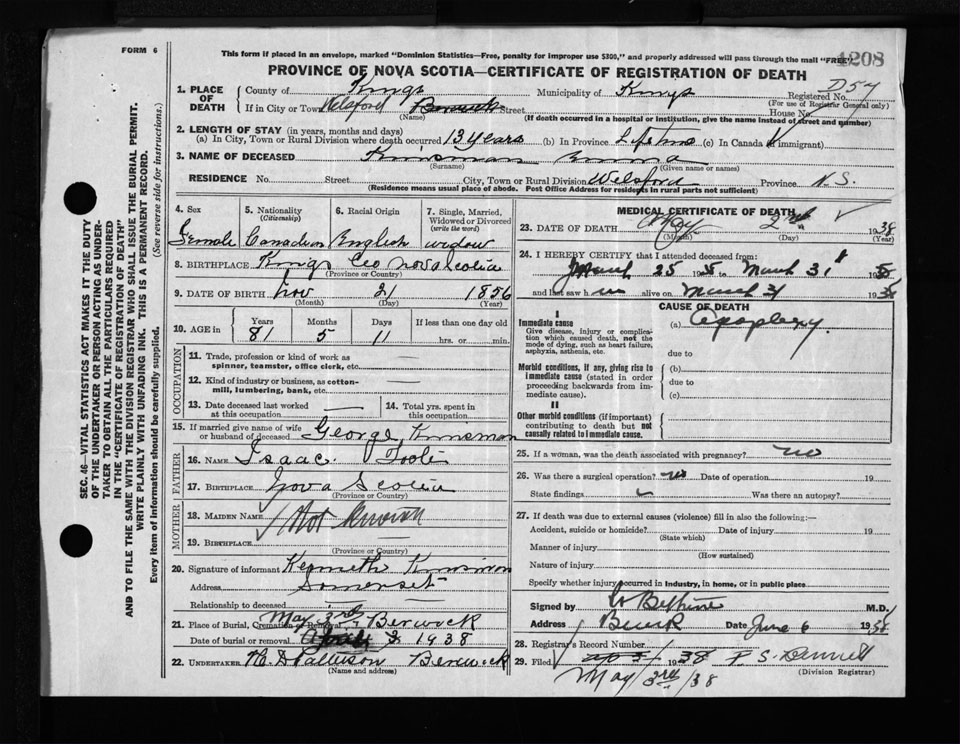 FORM 6
This form if placed in an envelope, marked "Dominion Statistics—Free, penalty for improper use $300," and properly addressed will pass through the mail "FREE"
4208
PROVINCE OF NOVA SCOTIA—CERTIFICATE OF REGISTRATION OF DEATH
1. PLACE OF DEATH County of Kings Municipality of Kings Registered No. D57
(For use of Registrar General only)
If in City or Town Welsford Berwick Street House No.
(Name) (If death occurred in a hospital or institution, give the name instead of street and number)
2. LENGTH OF STAY (in years, months and days)
(a) In City, Town or Rural Division where death occurred 13 years (b) In Province Lifetime (c) In Canada (if immigrant)
3. NAME OF DECEASED Kinsman Emma
(Surname) (Given name or names)
RESIDENCE No. Street City, Town or Rural Division Welsford Province N.S.
(Residence means usual place of abode. Post Office Address for residents in rural parts not sufficient)
4. Sex 5. Nationality (Citizenship) 6. Racial Origin 7. Single, Married, Widowed or Divorced (write the word)
Female Canadian English widow
8. BIRTHPLACE Kings Co Nova Scotia
(Province or Country)
9. DATE OF BIRTH Nov 21 1856
(Month) (Day) (Year)
10. AGE in Years Months Days If less than one day old
81 5 11 hrs. or min.
OCCUPATION
11. Trade, profession or kind of work as spinner, teamster, office clerk, etc. —
12. Kind of industry or business, as cotton-mill, lumbering, bank, etc. —
13. Date deceased last worked at this occupation — 14. Total yrs. spent in this occupation
15. If married give name of wife or husband of deceased George Kinsman
FATHER
16. Name Isaac Toole
17. Birthplace Nova Scotia
(Province or Country)
MOTHER
18. MAIDEN NAME Not Known
19. BIRTHPLACE
(Province or Country)
20. Signature of informant Kenneth Kinsman
Address Somerset
Relationship to deceased —
21. Place of Burial, Cremation or Removal May 3rd, Berwick
Date of burial or removal April 3 1938
22. UNDERTAKER Berwick
(Name and address)
MEDICAL CERTIFICATE OF DEATH
23. DATE OF DEATH May 2nd 1938
(Month) (Day) (Year)
24. I HEREBY CERTIFY that I attended deceased from:
March 25 to March 31
and last saw h alive on March 31 1938
CAUSE OF DEATH
I
Immediate cause
Give disease, injury or complication which caused death, not the mode of dying, such as heart failure, asphyxia, asthenia, etc.
(a) Apoplexy.
due to
Morbid conditions, if any, giving rise to immediate cause (stated in order proceeding backwards from immediate cause).
(b)
due to
(c)
II
Other morbid conditions (if important) contributing to death but not causally related to immediate cause.
25. If a woman, was the death associated with pregnancy? no
26. Was there a surgical operation? no Date of operation 19
State findings Was there an autopsy?
27. If death was due to external causes (violence) fill in also the following:—
Accident, suicide or homicide? Date of injury 19
(State which)
Manner of injury
(How sustained)
Nature of injury
Specify whether injury occurred in industry, in home, or in public place
Signed by M.D.
Address Date June 6 1938
28. Registrar's Record Number
29. Filed 1938
May 3rd/38 (Division Registrar)
SEC. 46—VITAL STATISTICS ACT MAKES IT THE DUTY
OF THE UNDERTAKER OR PERSON ACTING AS UNDER-
TAKER TO OBTAIN ALL THE PARTICULARS REQUIRED
IN THE "CERTIFICATE OF REGISTRATION OF DEATH"
AND TO FILE THE SAME WITH THE DIVISION REGISTRAR WHO SHALL ISSUE THE BURIAL PERMIT.
WRITE PLAINLY WITH UNFADING INK. THIS IS A PERMANENT RECORD.
Every item of information should be carefully supplied. (See reverse side for instructions.)